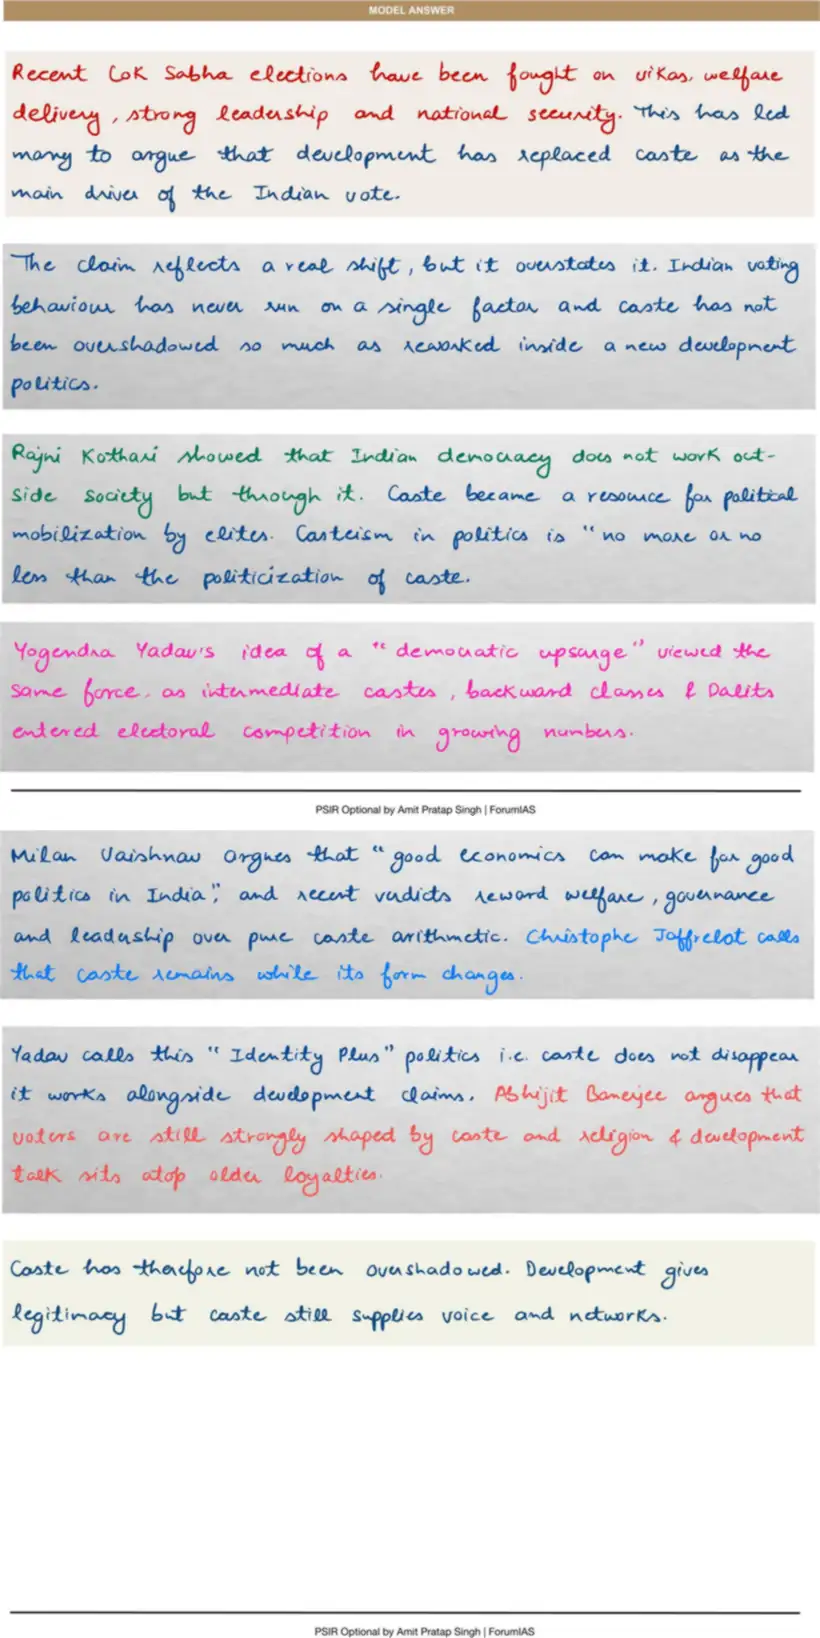 MODEL ANSWER
Recent Lok Sabha elections have been fought on vikas, welfare
delivery, strong leadership and national security. This has led
many to argue that development has replaced caste as the
main driver of the Indian vote.
The claim reflects a real shift, but it overstates it. Indian voting
behaviour has never run on a single factor and caste has not
been overshadowed so much as reworked inside a new development
politics.
Rajni Kothari showed that Indian democracy does not work out-
side society but through it. Caste became a resource for political
mobilization by elites. Casteism in politics is "no more or no
less than the politicization of caste.
Yogendra Yadav's idea of a "democratic upsurge" viewed the
same force, as intermediate castes, backward classes & Dalits
entered electoral competition in growing numbers.
PSIR Optional by Amit Pratap Singh | ForumIAS
Milan Vaishnav argues that "good economics can make for good
politics in India", and recent verdicts reward welfare, governance
and leadership over pure caste arithmetic. Christophe Jaffrelot calls
that caste remains while its form changes.
Yadav calls this "Identity Plus" politics i.e. caste does not disappear
it works alongside development claims. Abhijit Banerjee argues that
voters are still strongly shaped by caste and religion & development
talk sits atop older loyalties.
Caste has therefore not been overshadowed. Development gives
legitimacy but caste still supplies voice and networks.
PSIR Optional by Amit Pratap Singh | ForumIAS